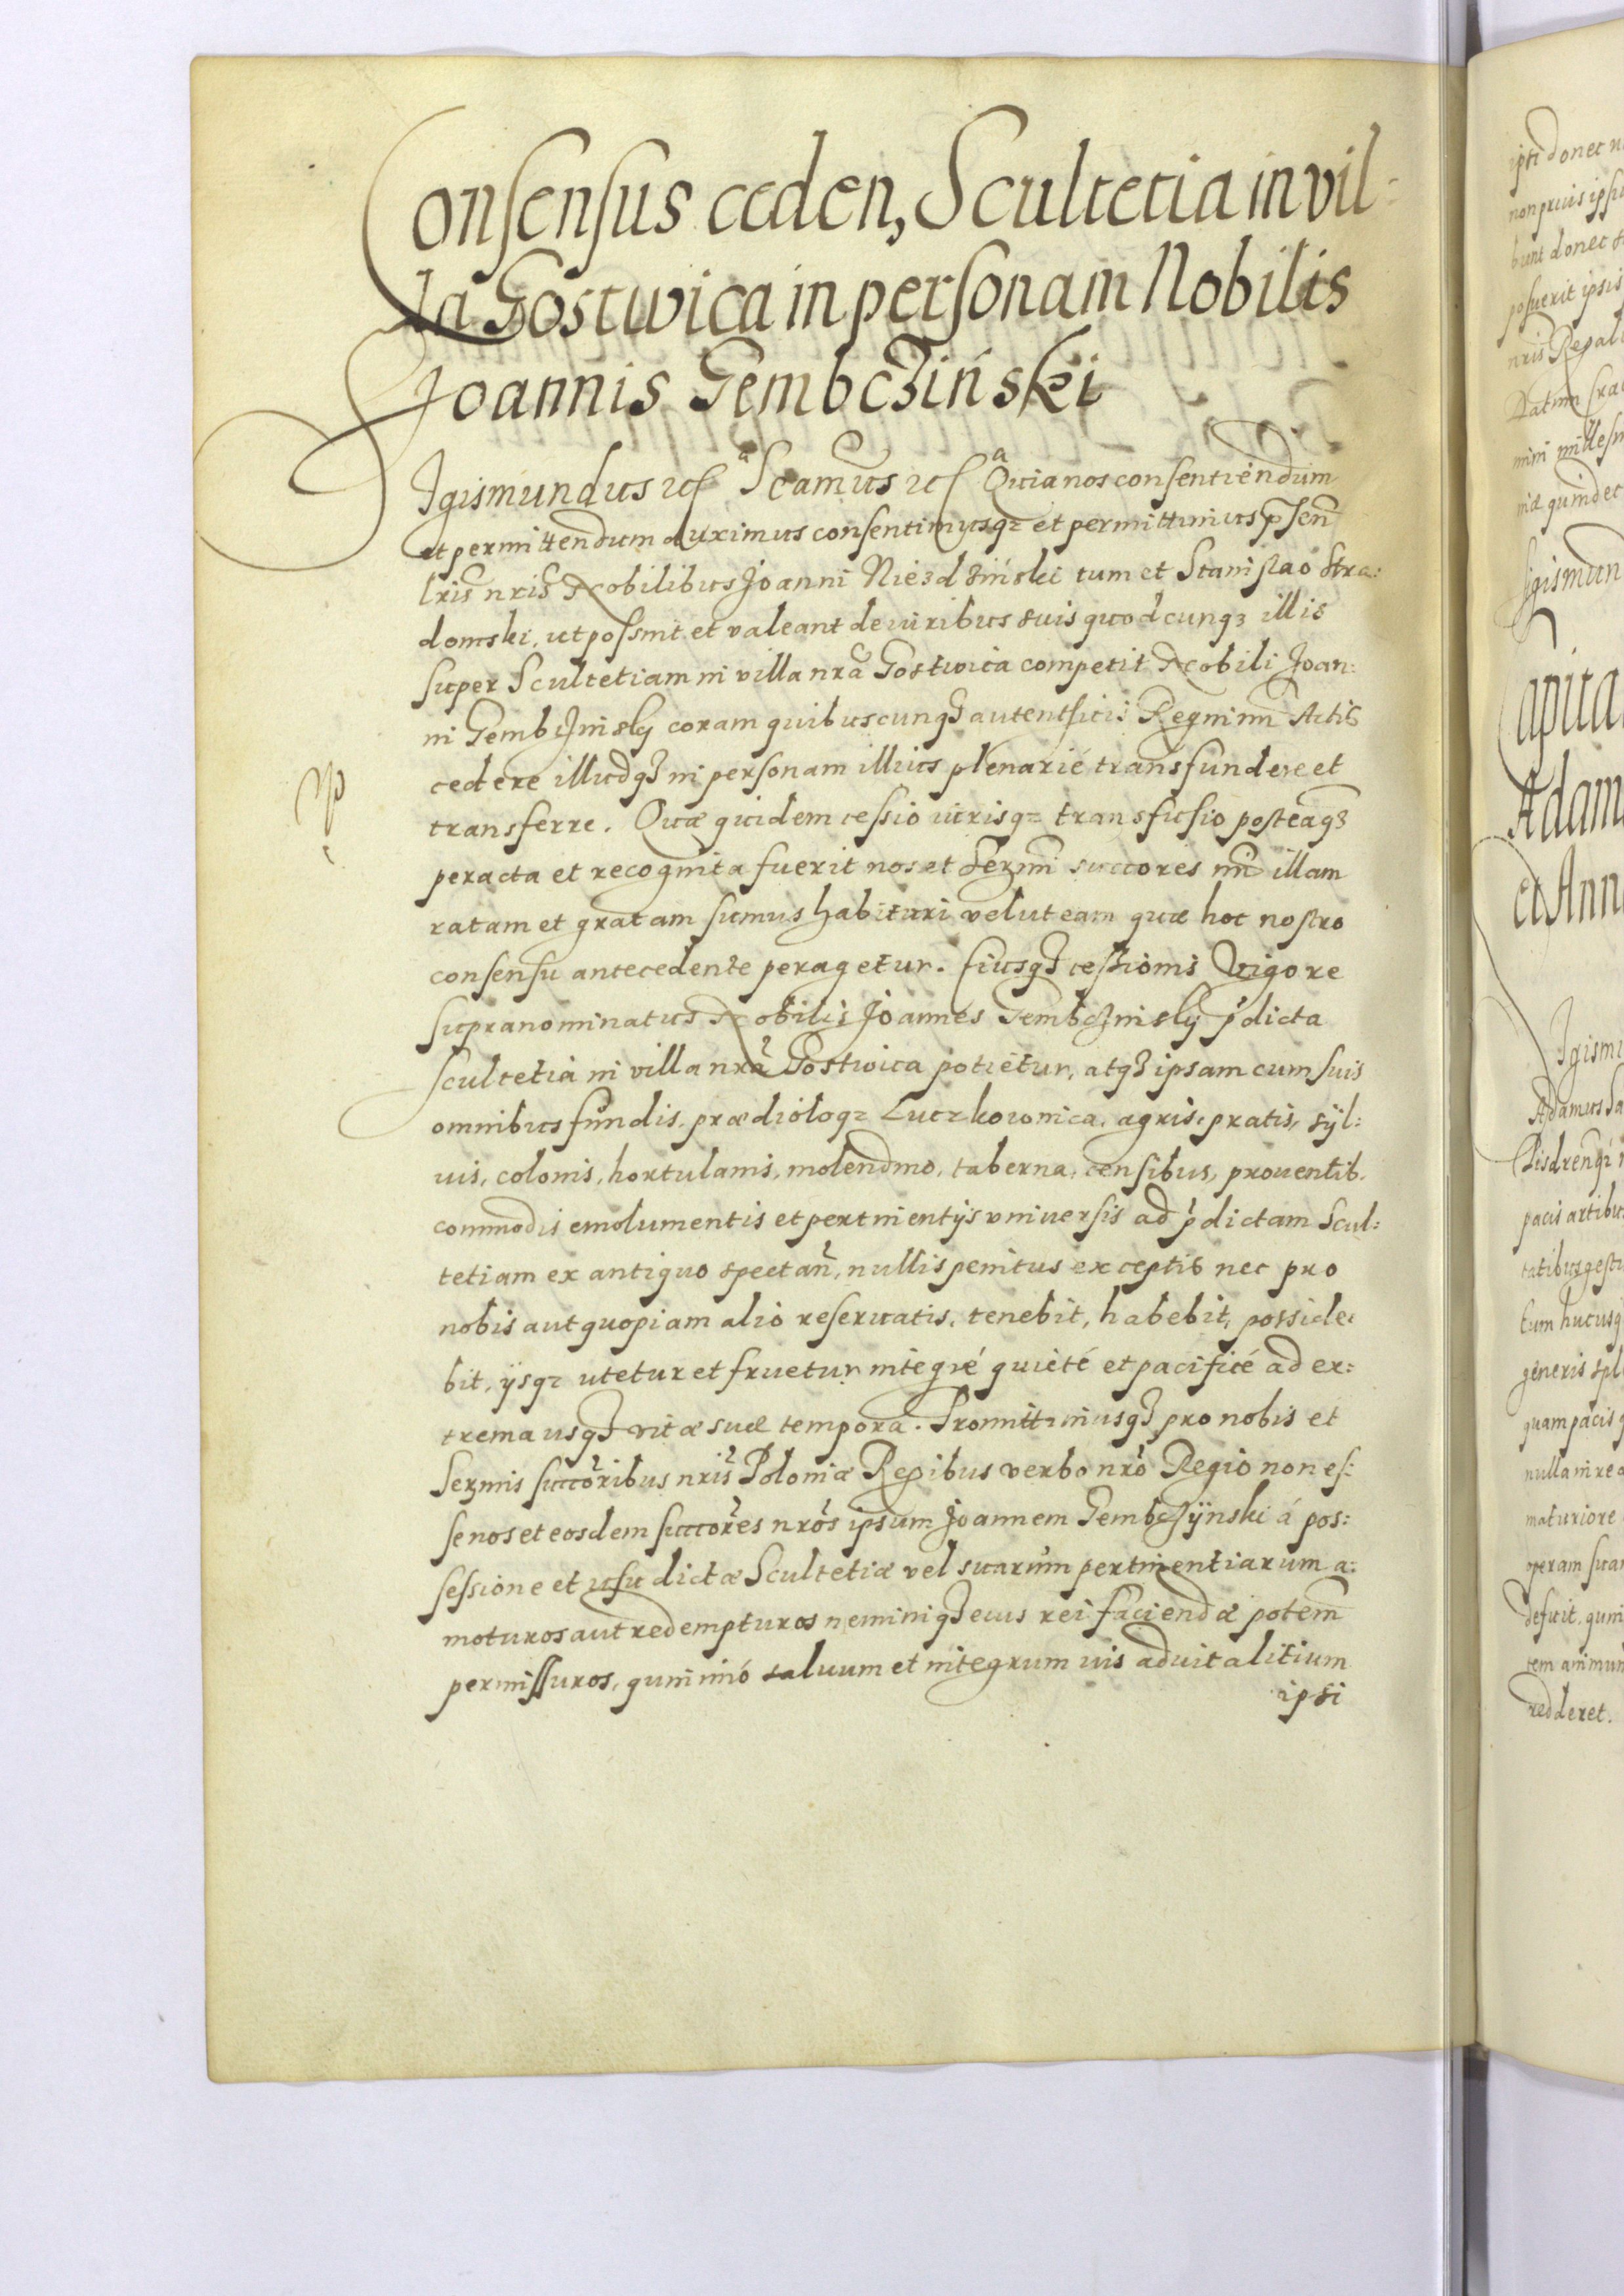 Consensus ceden, Scultetia in vil=
la Gostwica in personam Nobilis
Joannis Gembcziński
Sigismundus etc̃ Scamus etc̃ Quia nos consentiendum
et permittendum duximus consentimusq̃ et permittimus p̃sen
lris̃ nris̃ Nobilibus Joanni Niezdziński tum et Stanislao Stra=
domski, ut possint et valeant de iuribus suis quodcunq3 illis
super Scultetiam in villa nrã Gostwica competit Nobili Joan=
ni Gembczinsky coram quibuscunq3 autenticis Regnj nri Actis
cedere illudq3 in personam illius plenarié transfundere et
transferre. Quæ quidem cessio iurisq3 transfusio posteaq3
peracta et recognita fuerit nos et Sermi succores nri illam
ratam et gratam sumus habituri velut eam quæ hoc nostro
consensu antecedente peragetur. Eiusq3 cessionis vigore
supranominatus Nobilis Joannes Gembczinsky p̃dicta
scultetia in villa nrã Gostwica potietur, atq3 ipsam cum suis
omnibus fundis, prædioloq3 Luczkowonica, agris, pratis, syl=
uis, colonis, hortulanis, molendino, taberna, censibus, prouentib.
commodis emolumentis et pertinentijs vniuersis ad p̃dictam Scul=
tetiam ex antiquo spectañ, nullis penitus exceptis nec pro
nobis aut quopiam alio reseruatis, tenebit, habebit, posside=
bit, ijsq3 utetur et fruetur integré quieté et pacificé ad ex=
trema usq3 vitæ suæ tempora. Promittimusq3 pro nobis et
Sermis succoribus nris̃ Poloniæ Regibus verbo nrõ Regio non es=
se nos et eosdem succores nrõs ipsum Joannem Gembczÿnski á pos=
sessione et usu dictæ Scultetiæ vel suarum pertinentiarum a=
moturos aut redempturos neminiq3 eius rei faciendæ potem̃
permissuros, quinimó saluum et integrum ius aduitalitium
ipsi